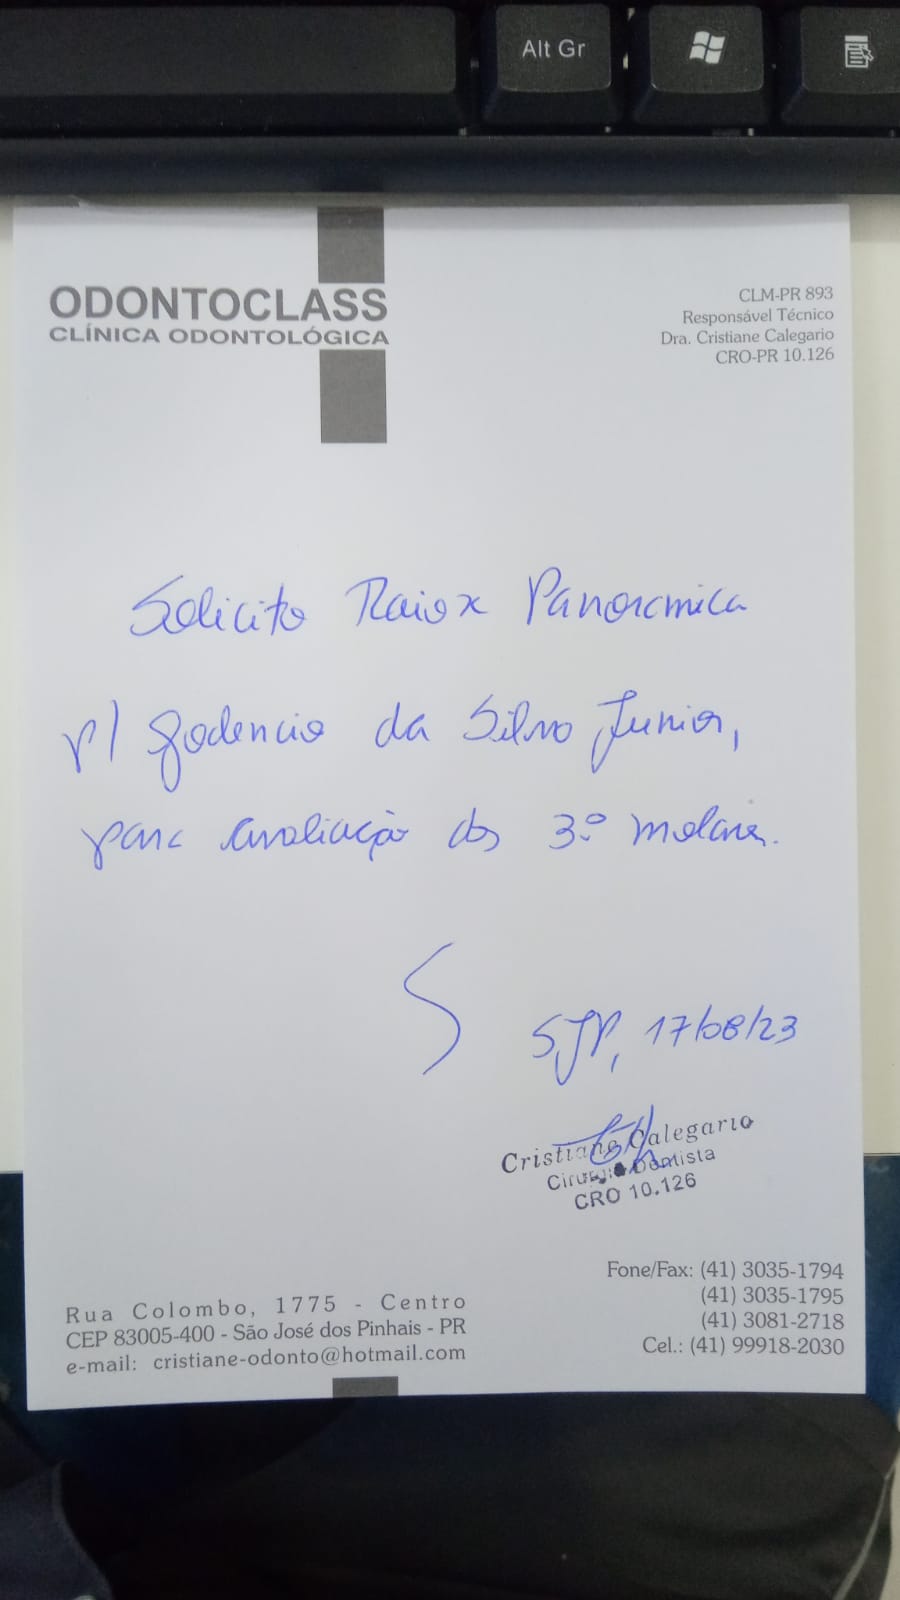 Alt Gr
ODONTOCLASS
CLÍNICA ODONTOLÓGICA
CLM-PR 893
Responsável Técnico
Dra. Cristiane Calegario
CRO-PR 10.126
Solicito Raio x Panoramica
p/ Godencio da Silva Junior,
para avaliação dos 3.º molares.
SJP, 17/08/23
Cristiane Calegario
Cirurgiã Dentista
CRO 10.126
Rua Colombo, 1775 - Centro
CEP 83005-400 - São José dos Pinhais - PR
e-mail: cristiane-odonto@hotmail.com
Fone/Fax: (41) 3035-1794
(41) 3035-1795
(41) 3081-2718
Cel.: (41) 99918-2030